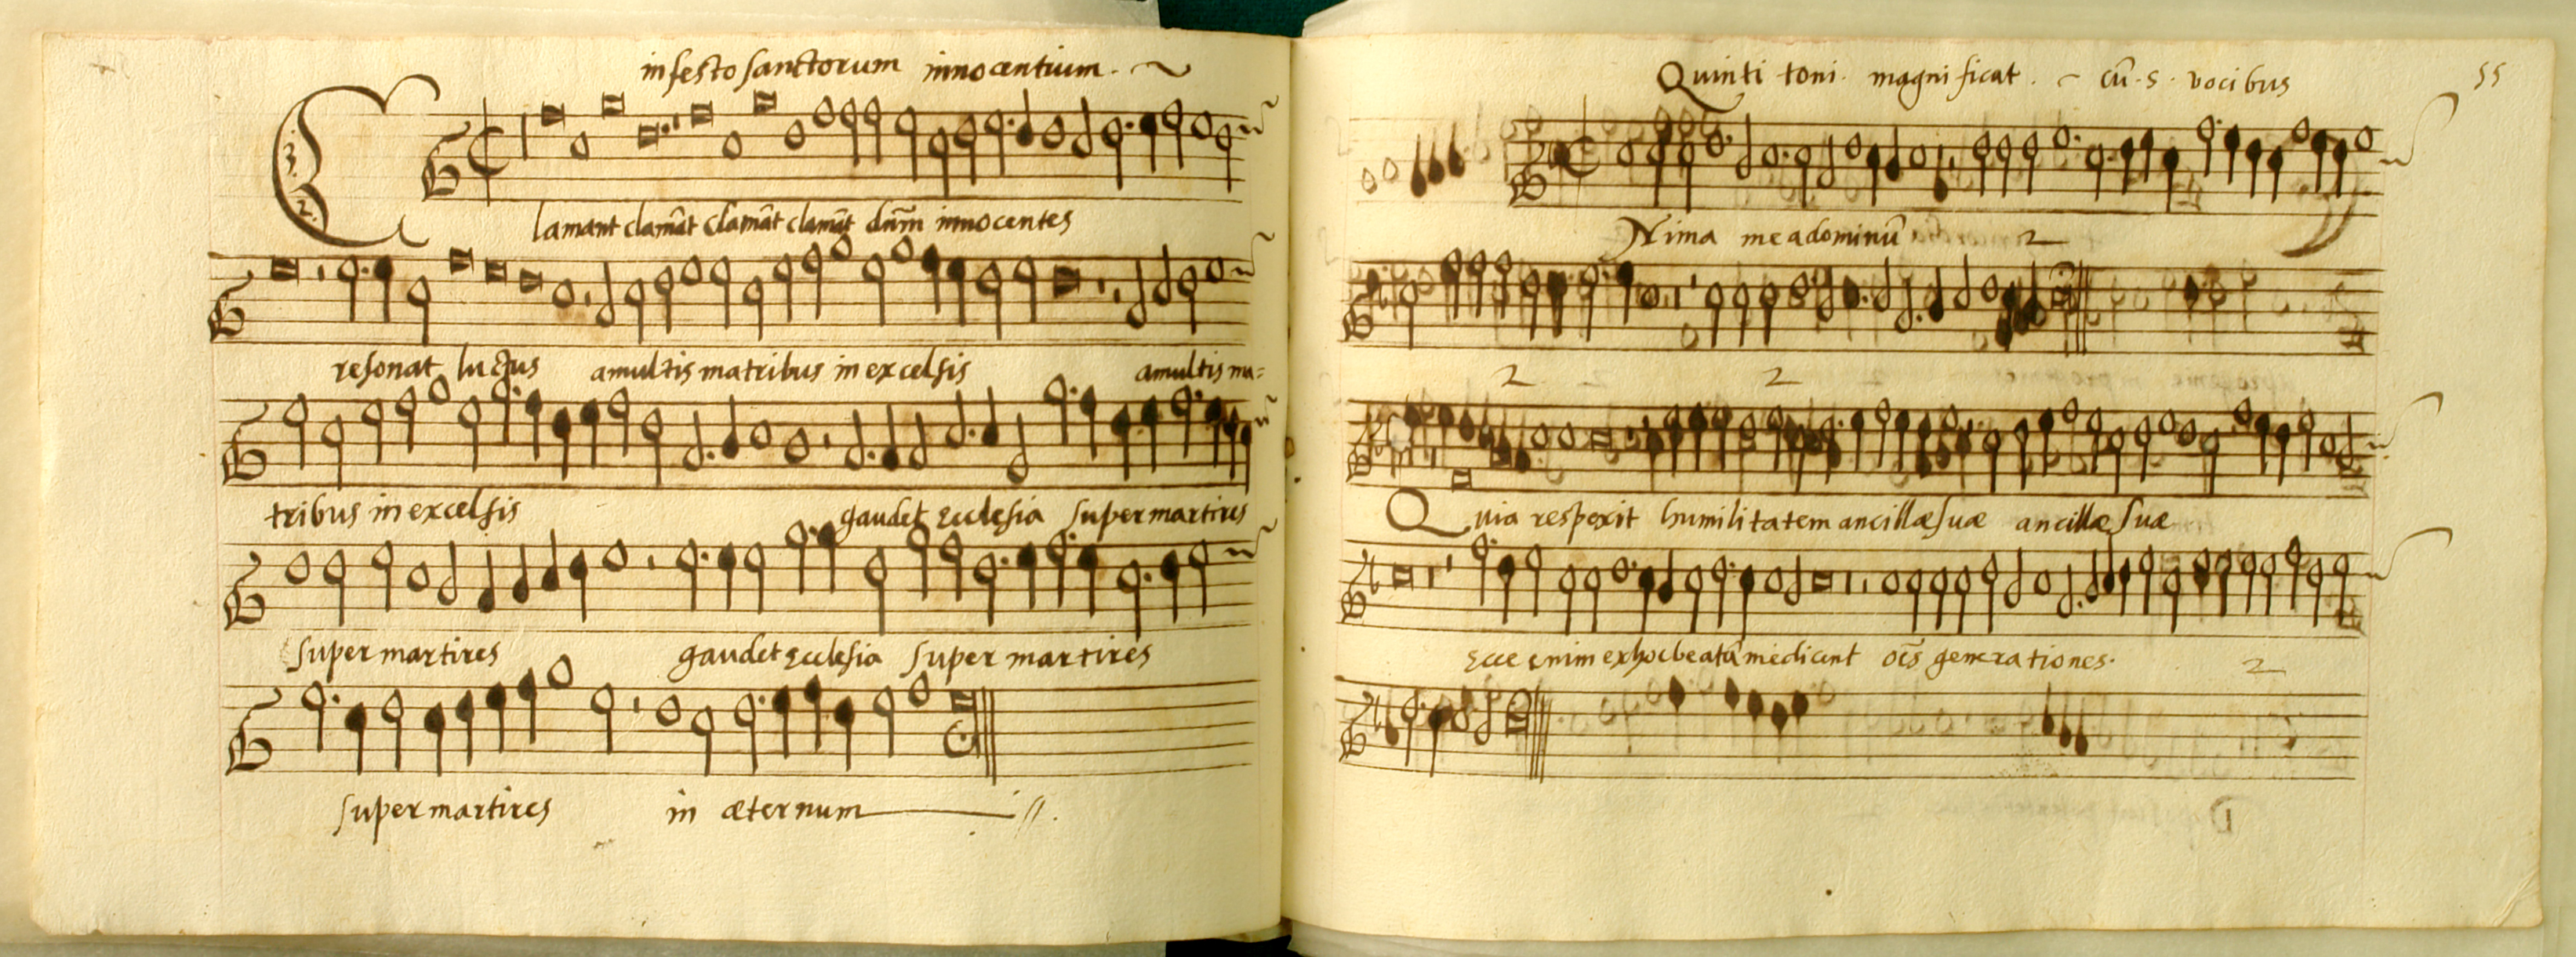 in festo sanctorum innocentium.
3.
2.
Clamant clamāt clamāt clamāt dnm̄ innocentes
resonat luctus a multis matribus in excelsis a multis ma=
tribus in excelsis gaudet ecclesia super martires
super martires gaudet ecclesia super martires
super martires in æternum
Quinti toni. magnificat. cū. 5. vocibus
55
Anima mea dominū 2
2 2
Quia respexit humilitatem ancillæ suæ ancillæ suæ
ecce enim ex hoc beatā me dicent oēs generationes. 2